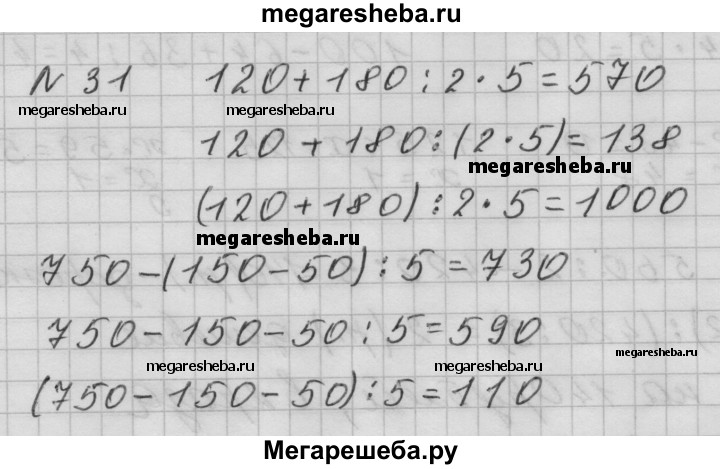 megaresheba.ru
N 31 120+180:2·5=570
megaresheba.ru megaresheba.ru
120+180:(2·5)=138
megaresheba.ru
(120+180):2·5=1000
megaresheba.ru
750-(150-50):5=730
750-150-50:5=590
megaresheba.ru megaresheba.ru megaresheba.ru
(750-150-50):5=110
Мегарешеба.ру